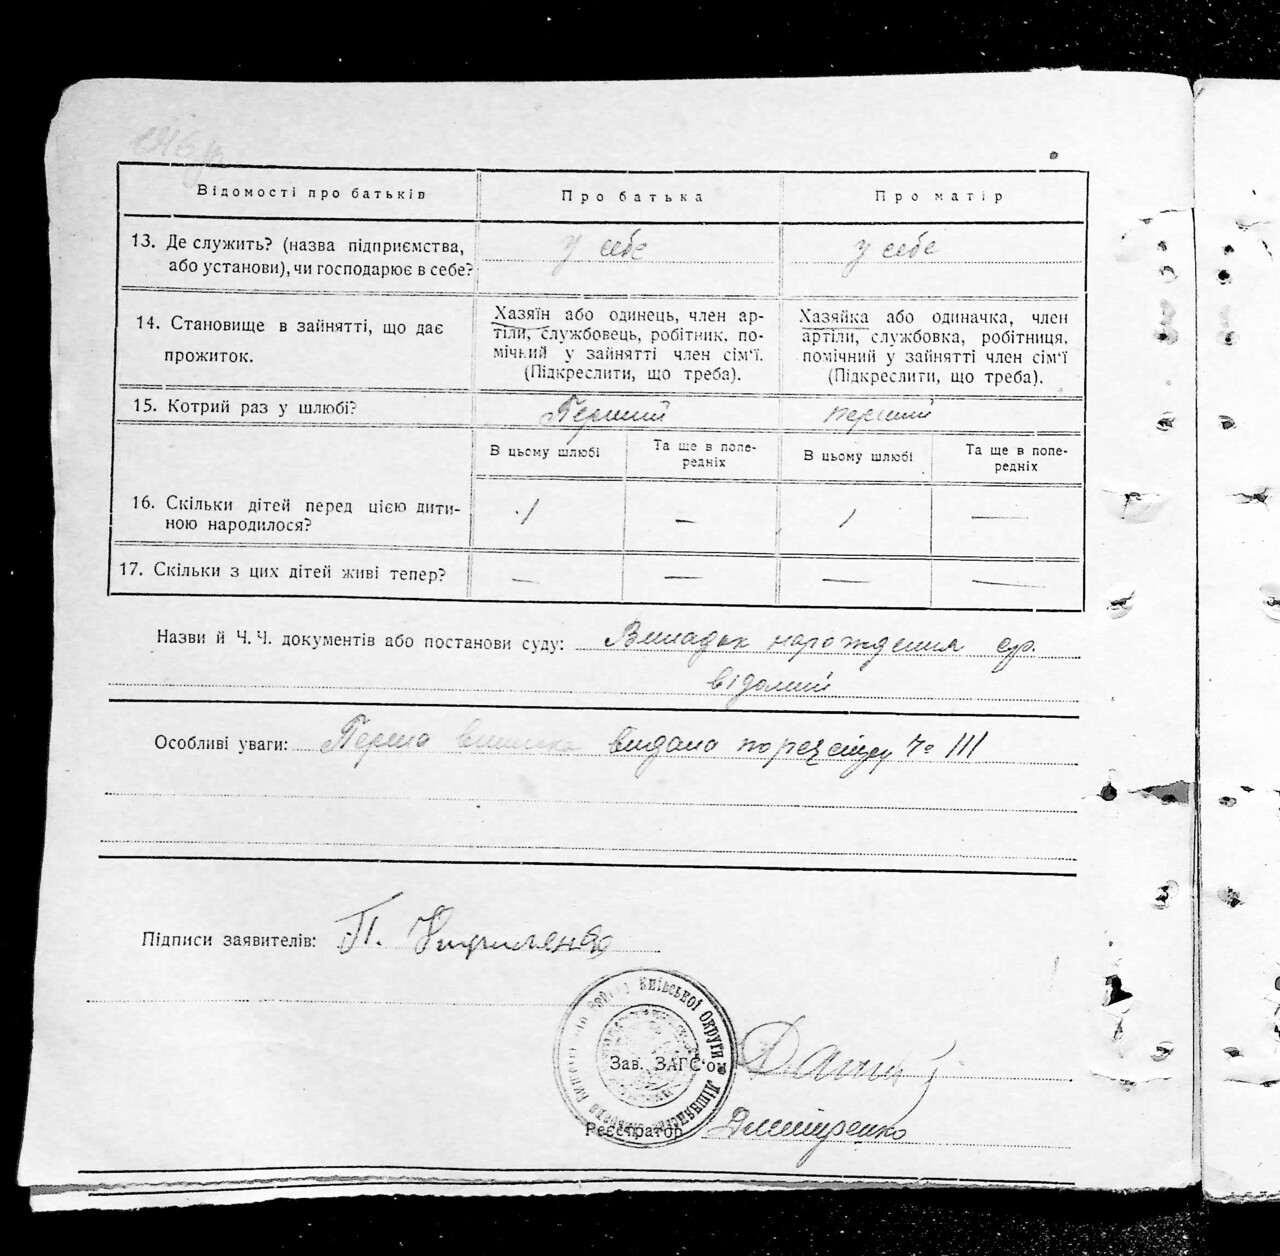 Відомості про батьків
Про батька
Про матір
13. Де служить? (назва підприємства,
або установи), чи господарює в себе?
у себе
у себе
14. Становище в зайнятті, що дає
прожиток.
Хазяїн або одинець, член ар-
тіли, службовець, робітник, по-
мічний у зайнятті член сім'ї.
(Підкреслити, що треба).
Хазяйка або одиначка, член
артіли, службовка, робітниця,
помічний у зайнятті член сім'ї
(Підкреслити, що треба).
15. Котрий раз у шлюбі?
Перший
перший
В цьому шлюбі
Та ще в попе-
редніх
В цьому шлюбі
Та ще в попе-
редніх
16. Скільки дітей перед цією дити-
ною народилося?
1
—
1
—
17. Скільки з цих дітей живі тепер?
—
—
—
—
Назви й Ч. Ч. документів або постанови суду: Випадок нарождения
відомий
Особливі уваги: Перша виписка видана по реєстру Ч° III
Підписи заявителів: П.
Київської Округи
Зав. ЗАГС'ом
Реєстратор Дмитренко